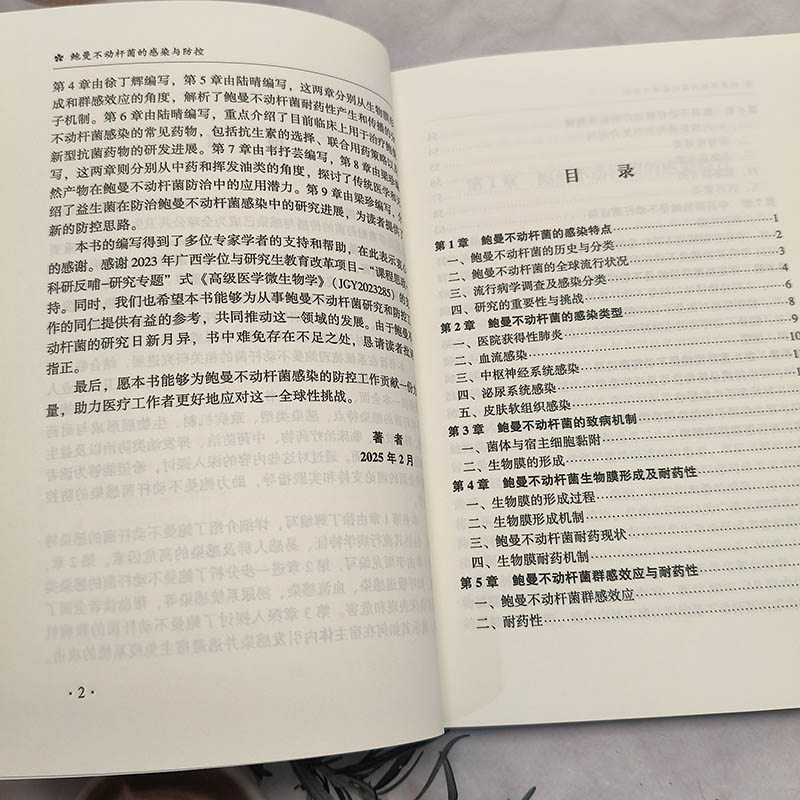 鲍曼不动杆菌的感染与防控
第4章由徐丁辉编写，第5章由陆晴编写，这两章分别从生物膜
成和群感效应的角度，解析了鲍曼不动杆菌耐药性产生和传播的
子机制。第6章由陆晴编写，重点介绍了目前临床上用于治疗鲍曼
不动杆菌感染的常见药物，包括抗生素的选择、联合用药策略以及
新型抗菌药物的研发进展。第7章由韦抒芸编写，第8章由梁珍编
写，这两章则分别从中药和挥发油类的角度，探讨了传统医学和天
然产物在鲍曼不动杆菌防治中的应用潜力。第9章由梁珍编写，介
绍了益生菌在防治鲍曼不动杆菌感染中的研究进展，为读者提供了
新的防控思路。
本书的编写得到了多位专家学者的支持和帮助，在此表示衷心
的感谢。感谢2023年广西学位与研究生教育改革项目-“课程思政-
科研反哺-研究专题”式《高级医学微生物学》（JGY2023285）的支
持。同时，我们也希望本书能够为从事鲍曼不动杆菌研究和防控工
作的同仁提供有益的参考，共同推动这一领域的发展。由于鲍曼不
动杆菌的研究日新月异，书中难免存在不足之处，恳请读者批评
指正。
最后，愿本书能够为鲍曼不动杆菌感染的防控工作贡献一份力
量，助力医疗工作者更好地应对这一全球性挑战。
著 者
2025年2月
·2·
目 录
第1章 鲍曼不动杆菌的感染特点 1
一、鲍曼不动杆菌的历史与分类 2
二、鲍曼不动杆菌的全球流行状况 2
三、流行病学调查及感染分类 4
四、研究的重要性与挑战 6
第2章 鲍曼不动杆菌的感染类型 8
一、医院获得性肺炎
二、血流感染 10
三、中枢神经系统感染
四、泌尿系统感染
五、皮肤软组织感染
第3章 鲍曼不动杆菌的致病机制
一、菌体与宿主细胞黏附
二、生物膜的形成
第4章 鲍曼不动杆菌生物膜形成及耐药性
一、生物膜的形成过程
二、生物膜形成机制
三、鲍曼不动杆菌耐药现状
四、生物膜耐药机制
第5章 鲍曼不动杆菌群感效应与耐药性
一、鲍曼不动杆菌群感效应
二、耐药性